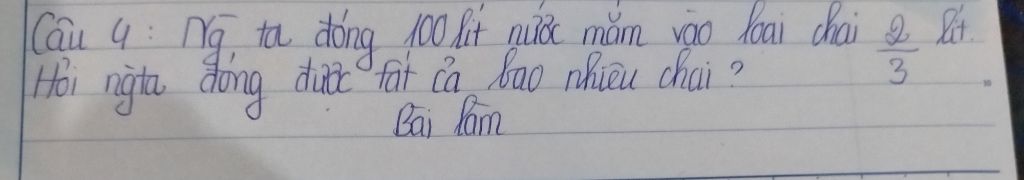 Câu 4: Ng̃ ta đóng 100 lít nước mắm vào loại chai 2/3 lít.
Hỏi ng̃ta đóng được tất cả bao nhiêu chai?
Bài làm